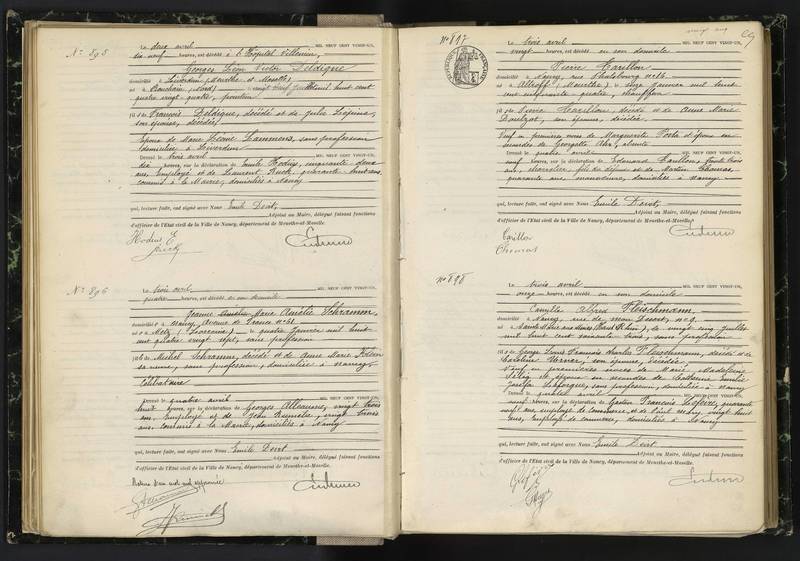 N° 895
Le deux avril MIL NEUF CENT VINGT-UN,
heures, est décédé à l'Hôpital Villemin,
Georges Léon Victor Deldique
domicilié à Liverdun (Meurthe et Moselle)
né à Bouchain (Nord) le vingt huit cent
quatre vingt quatre,
fils de François Deldique, décédé et de Julie
son épouse, décédée
Époux de Marie Lammens, sans profession
domiciliée à Liverdun
Dressé le trois avril MIL NEUF CENT VINGT-UN,
dix heures, sur la déclaration de Emile Hodius, cinquante deux
ans, Employé et de Laurent Ruck, quarante huit ans,
commis à la Mairie, domiciliés à Nancy
qui, lecture faite, ont signé avec Nous Emile Devit,
Adjoint au Maire, délégué faisant fonctions
d'officier de l'Etat civil de la Ville de Nancy, département de Meurthe-et-Moselle.
Hodius E
Ruck
N° 896
Le trois avril MIL NEUF CENT VINGT-UN,
quatre heures, est décédée en son domicile
Jeanne Marie Amélie Schramm
domiciliée à Nancy, Avenue de France n°
née à Metz (Lorraine) le quatre Janvier mil huit
cent quatre vingt sept, sans profession
fille de Michel Schramm, décédé et de Anne Marie
sa veuve, sans profession, domiciliée à Nancy
Célibataire
Dressé le quatre avril MIL NEUF CENT VINGT-UN,
huit heures, sur la déclaration de Georges vingt trois
ans, Employé et de vingt trois
ans, commis à la Mairie, domiciliés à Nancy
qui, lecture faite, ont signé avec Nous Emile Devit
Adjoint au Maire, délégué faisant fonctions
d'officier de l'Etat civil de la Ville de Nancy, département de Meurthe-et-Moselle.
mot nul
29
N° 897
Le trois avril MIL NEUF CENT VINGT-UN,
vingt heures, est décédé en son domicile
Pierre Carillon
domicilié à Nancy, rue Phalsbourg n° 16
né à (Meurthe) le onze Janvier mil huit
cent cinquante quatre, chauffeur
fils de Pierre Carillon, décédé et de Anne Marie
son épouse, décédée
Veuf en premières noces de Marguerite époux en
secondes de Georgette
Dressé le quatre avril MIL NEUF CENT VINGT-UN,
neuf heures, sur la déclaration de Edouard Carillon, trente trois
ans, charretier, fils du défunt et de Martin Thomas,
quarante ans, manoeuvre, domiciliés à Nancy
qui, lecture faite, ont signé avec Nous Emile Devit,
Adjoint au Maire, délégué faisant fonctions
d'officier de l'Etat civil de la Ville de Nancy, département de Meurthe-et-Moselle.
Carillon
Thomas
N° 898
Le trois avril MIL NEUF CENT VINGT-UN,
onze heures, est décédé en son domicile
Camille Alfred Fleischmann,
domicilié à Nancy, rue de n° 9
né à Sainte Marie aux Mines (Haut Rhin), le vingt cinq Juillet
mil huit cent soixante trois, sans profession
fils de George Louis François Charles Fleischmann, décédé et de
Caroline son épouse, décédée
Veuf en premières noces de Marie Madeleine
époux en secondes de Catherine
sans profession, domiciliée à Nancy
Dressé le quatre avril MIL NEUF CENT VINGT-UN,
neuf heures, sur la déclaration de Gaston François quarante
neuf ans, employé de commerce, et de vingt huit
ans, Employé de commerce, domiciliés à Nancy
qui, lecture faite, ont signé avec Nous Emile Devit
Adjoint au Maire, délégué faisant fonctions
d'officier de l'Etat civil de la Ville de Nancy, département de Meurthe-et-Moselle.